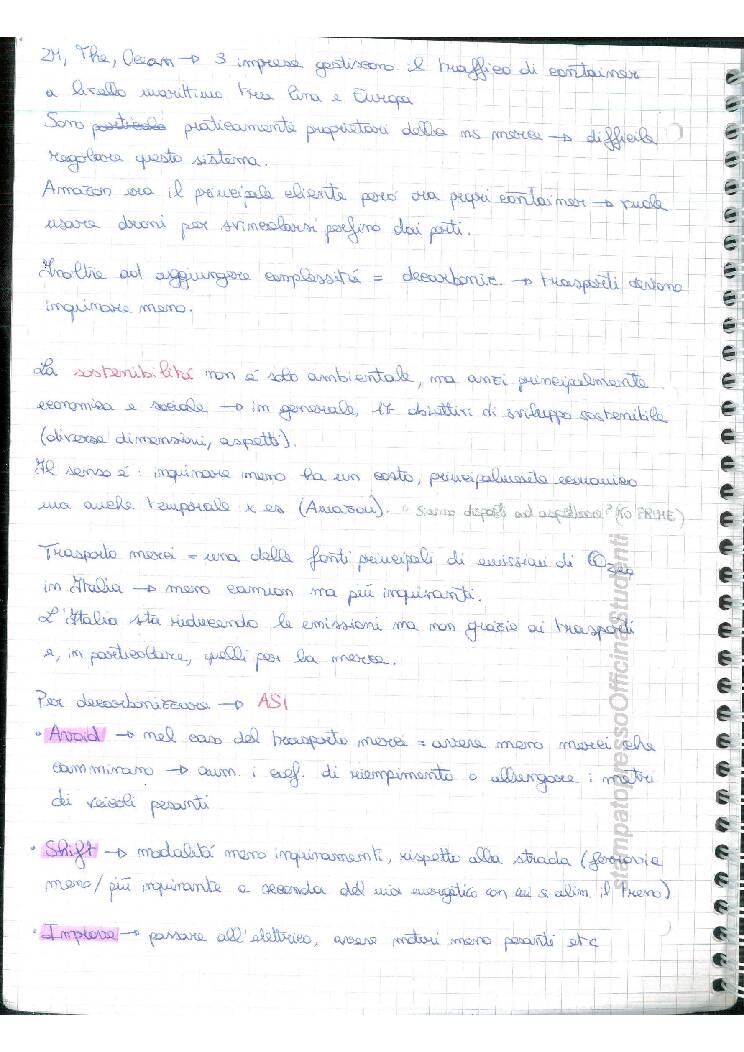 2M, The, Ocean → 3 imprese gestiscono il traffico di container
a livello marittimo tra Cina e Europa
Sono praticamente proprietari della ns merce → difficile
regolare questo sistema.
Amazon era il principale cliente però ora propri container → vuole
usare droni per svincolarsi perfino dai porti.
Inoltre ad aggiungere complessità = decarboniz. → trasporti devono
inquinare meno.
La sostenibilità non è solo ambientale, ma anzi principalmente
economica e sociale → in generale, 17 obiettivi di sviluppo sostenibile
(diverse dimensioni, aspetti).
Il senso è: inquinare meno ha un costo, principalmente economico
ma anche temporale x es (Amazon). Siamo disposti ad aspettare? (NO PRIME)
Trasporto merci = una delle fonti principali di emissioni di
in Italia → meno camion ma più inquinanti.
L'Italia sta riducendo le emissioni ma non grazie ai trasporti
e, in particolare, quelli per la merce.
Per decarbonizzare → ASI
• Avoid → nel caso del trasporto merci = avere meno merci che
camminano → aum. i coef. di riempimento o allungare i metri
dei veicoli pesanti
• Shift → modalità meno inquinamenti, rispetto alla strada (ferrovia
meno/più inquinante a seconda del mix energetico con cui si alim. il treno)
• Improve → passare all'elettrico, avere motori meno pesanti etc
stampatopressoOfficinaStudenti